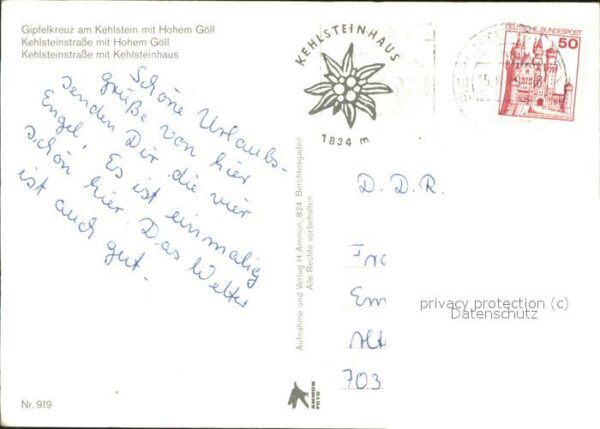 Gipfelkreuz am Kehlstein mit Hohem Göll
Kehlsteinstraße mit Hohem Göll
Kehlsteinstraße mit Kehlsteinhaus
Schöne Urlaubs-
grüße von hier
senden Dir die vier
Engel. Es ist einmalig
schön hier. Das Wetter
ist auch gut.
Nr. 919
Aufnahme und Verlag H. Ammon, 824 Berchtesgaden
Alle Rechte vorbehalten
AMMON
FOTO
KEHLSTEINHAUS
1834 m
DEUTSCHE BUNDESPOST
50
D. D. R.
Em
Alt
703
privacy protection (c)
Datenschutz